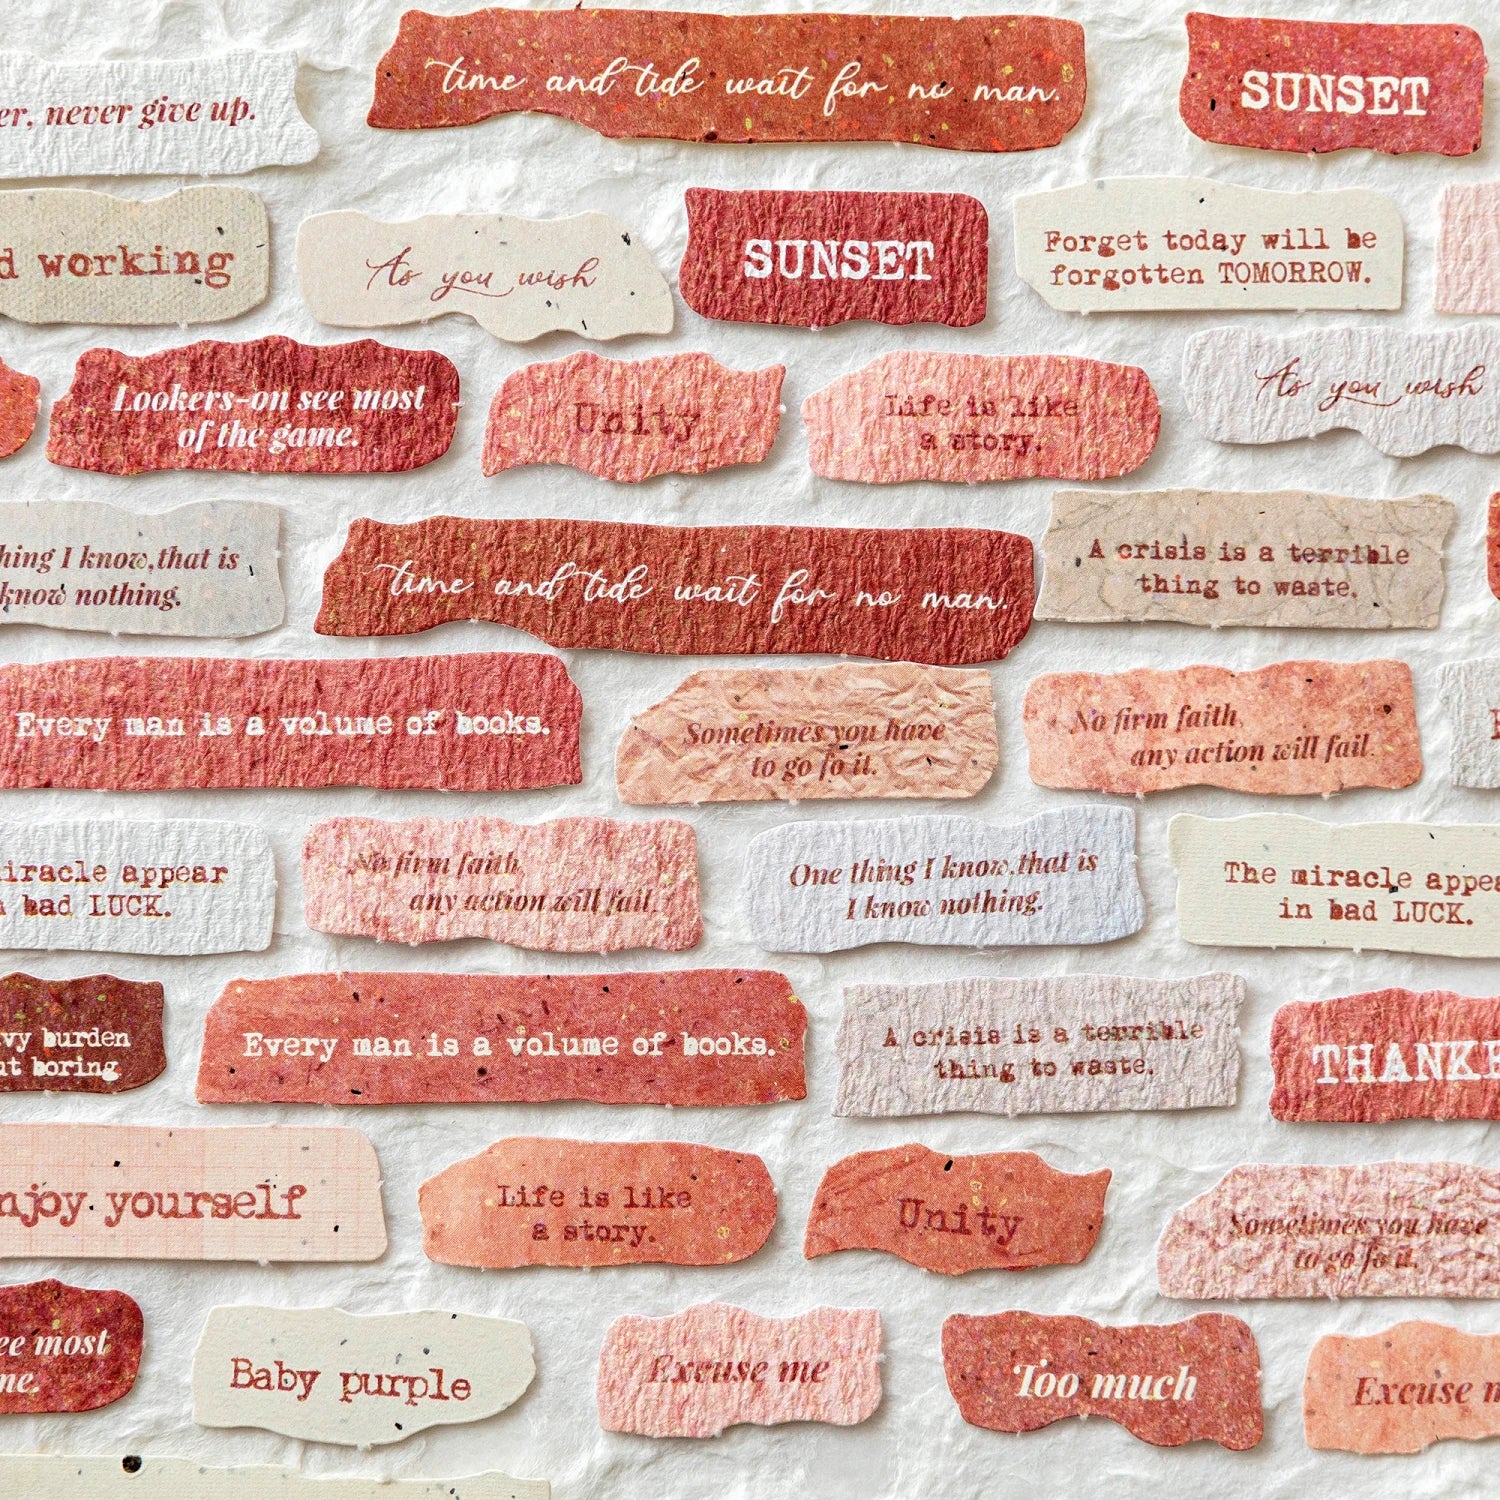 er, never give up.
time and tide wait for no man.
SUNSET
d working
As you wish
SUNSET
Forget today will be
forgotten TOMORROW.
Lookers-on see most
of the game.
Unity
Life is like
a story.
As you wish
hing I know, that is
know nothing.
time and tide wait for no man.
A crisis is a terrible
thing to waste.
Every man is a volume of books.
Sometimes you have
to go fo it.
No firm faith,
any action will fail.
iracle appear
bad LUCK.
No firm faith,
any action will fail.
One thing I know, that is
I know nothing.
The miracle appea
in bad LUCK.
vy burden
ut boring
Every man is a volume of books.
A crisis is a terrible
thing to waste.
THANKE
njoy yourself
Life is like
a story.
Unity
Sometimes you have
to go fo it.
ee most
me.
Baby purple
Excuse me
Too much
Excuse m